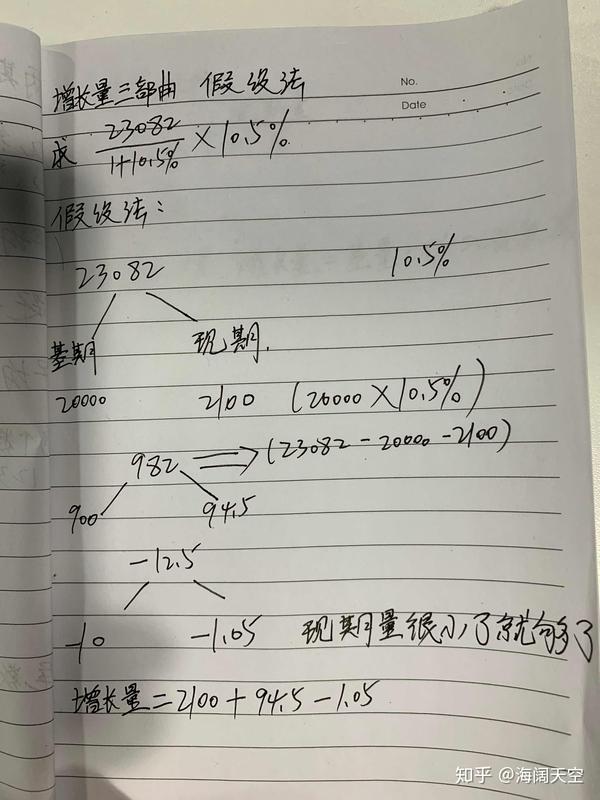 增长量三部曲 假设法
No.
Date
求 23082/1+10.5% × 10.5%
假设法:
23082 10.5%
基期 现期.
20000 2100 (20000×10.5%)
982 ⟹ (23082-20000-2100)
900 94.5
-12.5
-10 -1.05 现期量很小了就够了
增长量=2100+94.5-1.05
知乎 @海阔天空